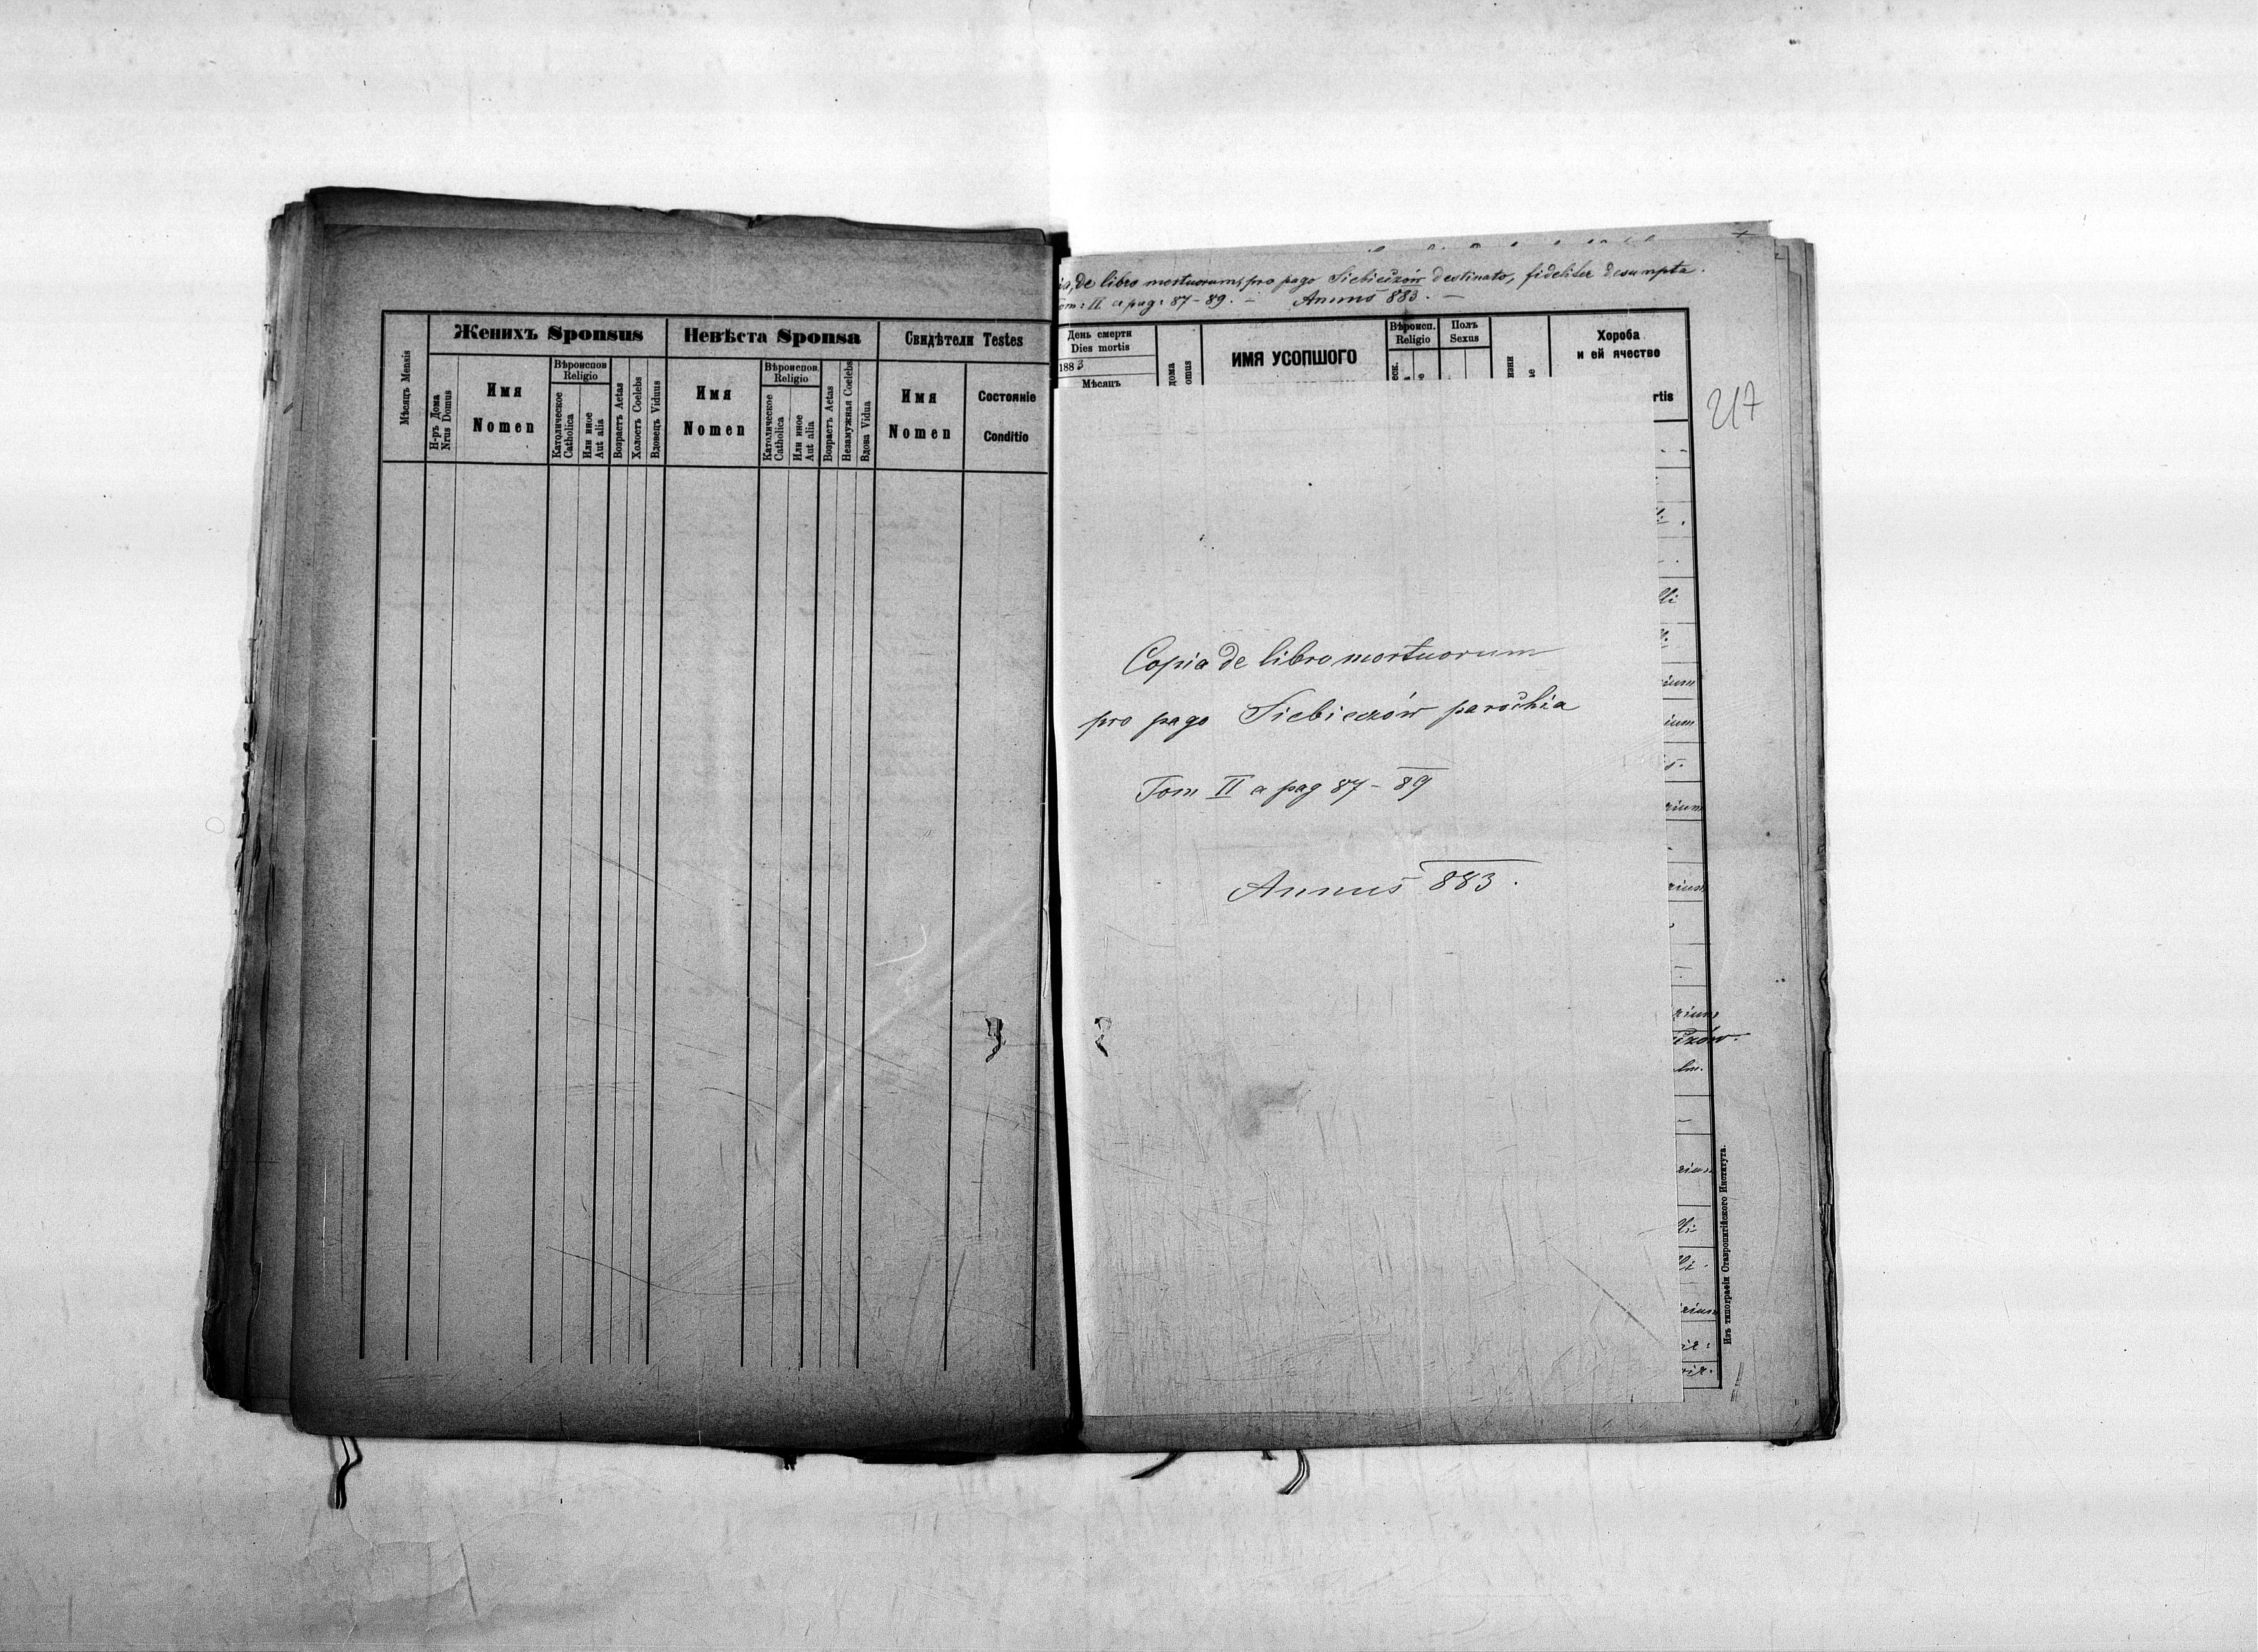 Женихъ Sponsus
Невѣста Sponsa
Свидѣтели Testes
Мѣсяцъ Mensis
Н-ръ Дома
Nrus Domus
Имя
Nomen
Вѣроиспов
Religio
Католическое
Catholica
Или иное
Aut alia
Возрастъ Aetas
Холостъ Coelebs
Вдовецъ Viduus
Имя
Nomen
Вѣроиспов.
Religio
Католическое
Catholica
Или иное
Aut alia
Возрастъ Aetas
Незамужная Coelebs
Вдова Vidua
Имя
Nomen
Состояніе
Conditio
de libro mortuorum, pro pago Siebieczów destinato, fideliter desumpta.
Tom: II a pag: 87-89. — Annus 883. —
День смерти
Dies mortis
1883
Мѣсяцъ
дома
omus
ИМЯ УСОПШОГО
Вѣроисп.
Religio
Полъ
Sexus
Хороба
и ей ячество
rtis
217
Copia de libro mortuorum
pro pago Siebieczów parochia
Tom II a pag 87-89
Annus 883.
Изъ типографіи Ставропигійского Института.